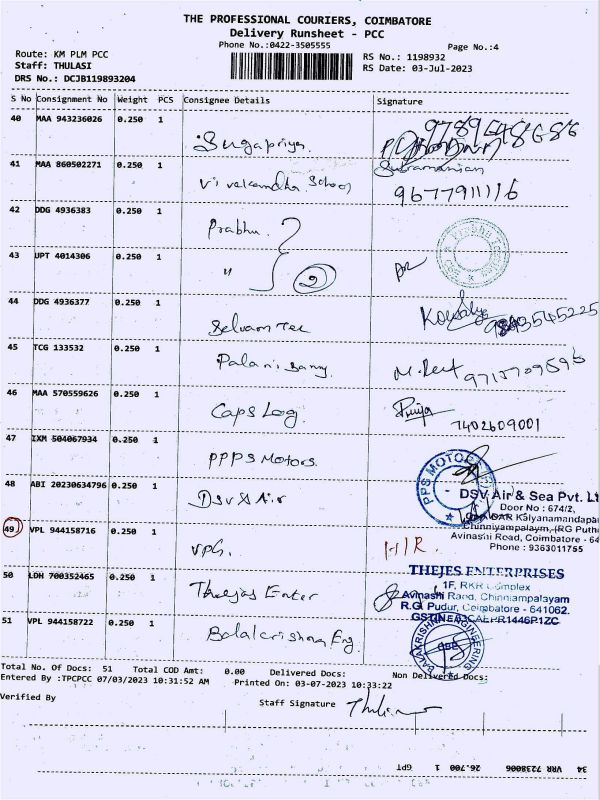 THE PROFESSIONAL COURIERS, COIMBATORE
Delivery Runsheet - PCC
Phone No.:0422-3505555
Page No.:4
Route: KM PLM PCC
Staff: THULASI
DRS No.: DCJB119893204
RS No.: 1198932
RS Date: 03-Jul-2023
S No Consignment No Weight PCS Consignee Details Signature
40 MAA 943236026 0.250 1
Sugapriya.
41 MAA 860502271 0.250 1
Vivekandha School
Subramanian
9677911116
42 DDG 4936383 0.250 1
Prabhu.
43 UPT 4014306 0.250 1
" 2
44 DDG 4936377 0.250 1
Selvam Tex
45 TCG 133532 0.250 1
Palani Samy
46 MAA 570559626 0.250 1
Caps Log.
Priya
7402609001
47 IXM 504067934 0.250 1
PPPS Motors.
PPS MOTORS
48 ABI 20230634796 0.250 1
DSV Air
DSV Air & Sea Pvt. Lt
Door No : 674/2,
Kalyanamandapa
Chinniyampalaym, (RG Puth
Avinashi Road, Coimbatore - 64
Phone : 9363011755
49 VPL 944158716 0.250 1
VPG.
H/R.
50 LDH 700352465 0.250 1
Thejas Enter
THEJES ENTERPRISES
1F, RKR Complex
Avinashi Raod, Chinniampalayam
R.G. Pudur, Coimbatore - 641062.
51 VPL 944158722 0.250 1
Balakrishna Eng.
BALAKRISHNA ENGINEERING
Total No. Of Docs: 51 Total COD Amt: 0.00 Delivered Docs: Non Delivered Docs:
Entered By :TPCPCC 07/03/2023 10:31:52 AM Printed On: 03-07-2023 10:33:22
Verified By
Staff Signature
34 VRR 7238006 26.700 1 GPT